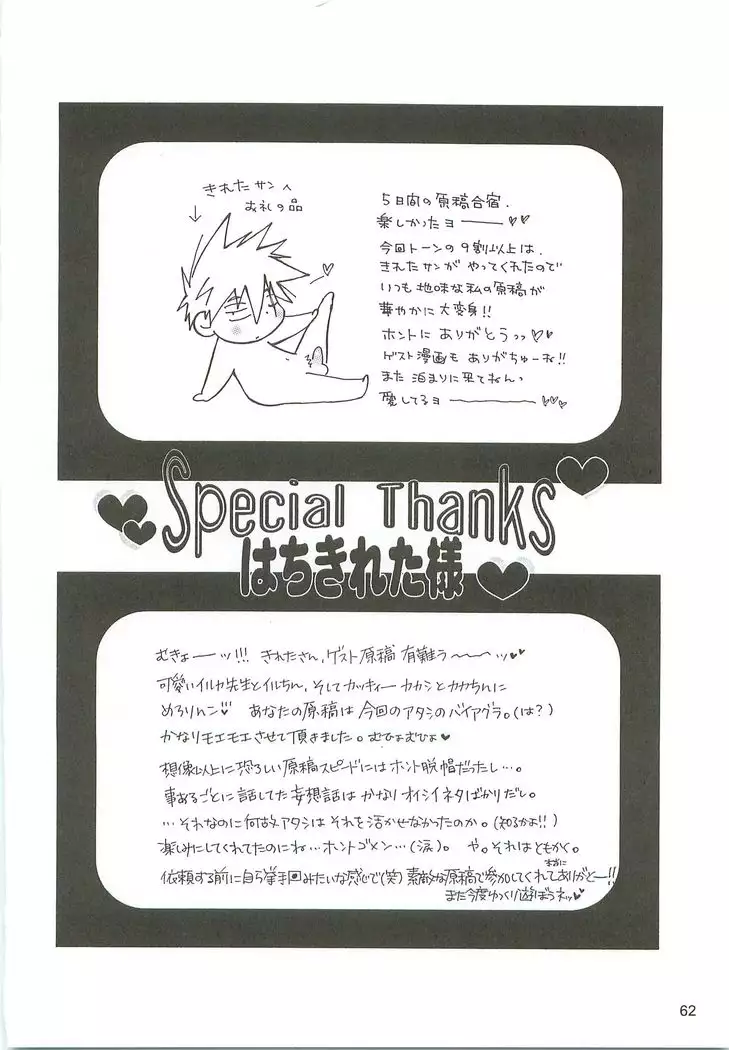 きれたサンへ
お礼の品
5日間の原稿合宿、
楽しかったヨーーー♡♡
今回トーンの9割以上は、
きれたサンが やってくれたので
いつも地味な私の原稿が
華やかに大変身!!
ホントに ありがとうっっ♡♡
ゲスト漫画も ありがちゅーね!!
また 泊まりに来てねんっ
愛してるヨーーーー♡♡♡
Special Thanks
はちきれた様
むきょーーッ!!! きれたさん、ゲスト原稿 有難う〜〜〜ッ♥♥
可愛いイルカ先生とイルちん、そしてカッキィーカカシとカカちんに
めろりんこ♡ あなたの原稿は今回のアタシのバイアグラ。(は?)
かなりモエモエさせて頂きました。むひょむひょ♥
想像以上に恐ろしい原稿スピードにはホント脱帽だったし…。
事あるごとに話してた妄想話は かなり オイシイネタばかりだし。
…それなのに何故アタシは それを活かせなかったのか。(知るかよ!!)
楽しみにしてくれてたのにね…ホントゴメン…(涙)。 や。それはともかく。
依頼する前に自ら挙手回みたいな感じで(笑) 素敵な原稿で参加してくれてまぢにありがとー!!
また今度ゆっくり遊ぼうネッ♥♥
62